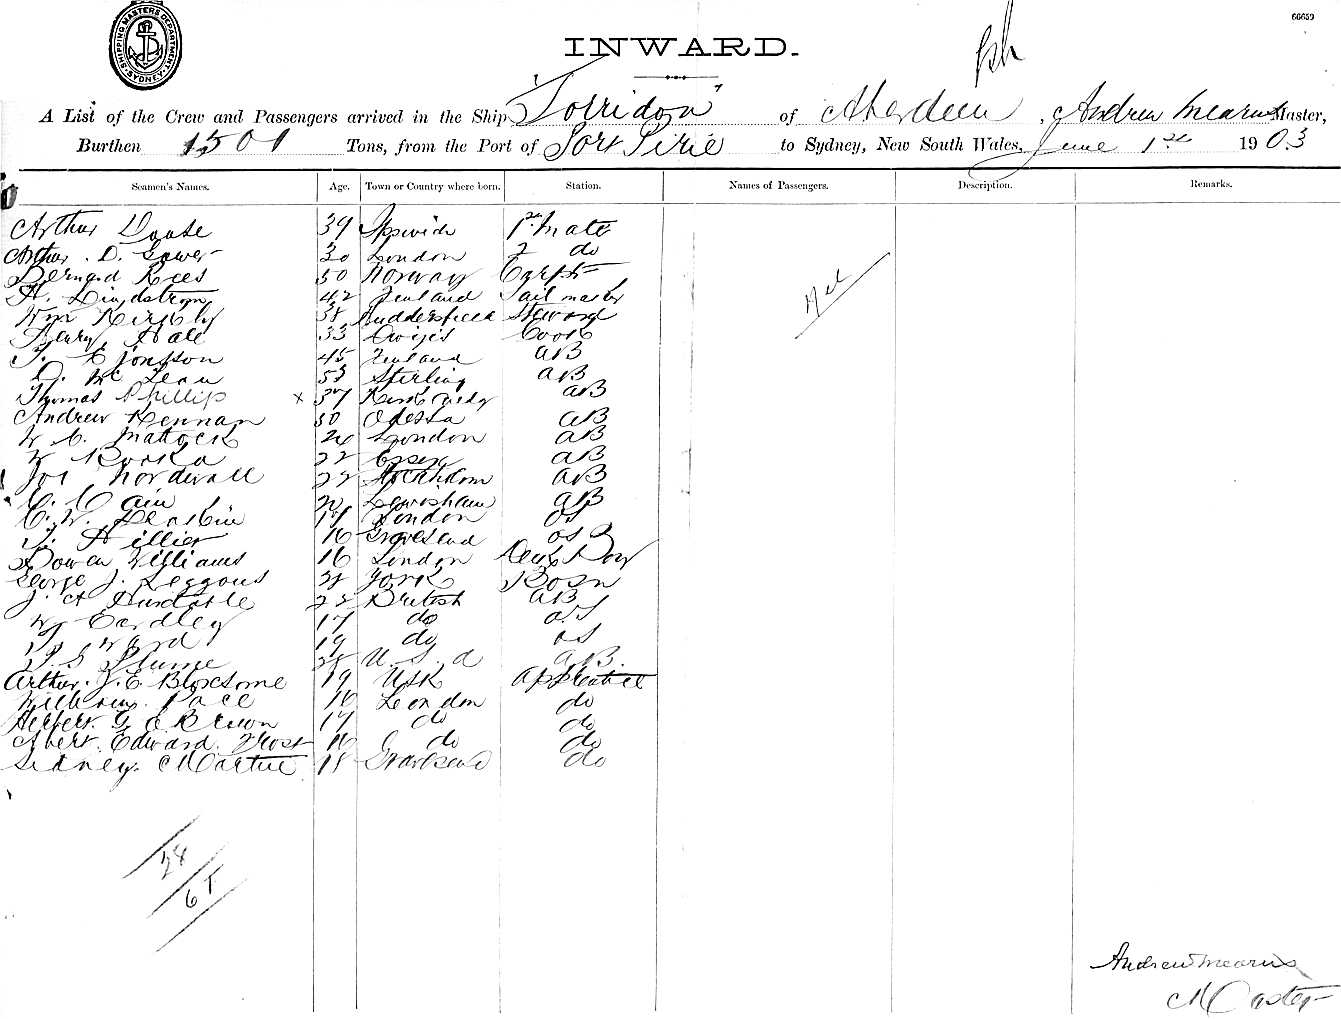 SHIPPING MASTERS DEPARTMENT. SYDNEY.
66659
INWARD.
A List of the Crew and Passengers arrived in the Ship "Torridon" of Aberdeen, Andrew Mearns Master,
Burthen 1501 Tons, from the Port of Port Pirie to Sydney, New South Wales, June 1st 1903
Seamen's Names. Age. Town or Country where born. Station. Names of Passengers. Description. Remarks.
Arthur 39 Ipswich 1st Mate
Arthur. D. Gower 30 London 2 do
Bernard Rees 50 Norway Carpt
A. Lindstrom 42 Finland Sail maker
Wm Kirkby 38 Huddersfield Steward
Henry Hale 33 Cook
45 Finland AB
D. Mc Lean 53 Stirling AB
Thomas Phillip x 37 AB
Andrew Kennan 30 Odessa AB
W. C. Mattock 26 London AB
W 22 Essex AB
Jos Nordwall 22 Stockholm AB
C. Cain 20 Lewisham AB
C. W. Deakin 19 London OS
T. Hillier 16 Gravesend OS
Bowen Williams 16 London Deck Boy
George J. Seggous York Bosn
J. A 22 British AB
W Eardley 17 do O.S
Ward 19 do OS
Plume U.S.A A.B.
Arthur. J. E. Bloxsome 19 Usk Apprentice
William. Pace 16 London do
Herbert. G. Brown 17 do do
Albert. Edward. Frost 16 do do
Sidney. Martin 18 Gravesend do
Nil
28
Andrew Mearns
Master